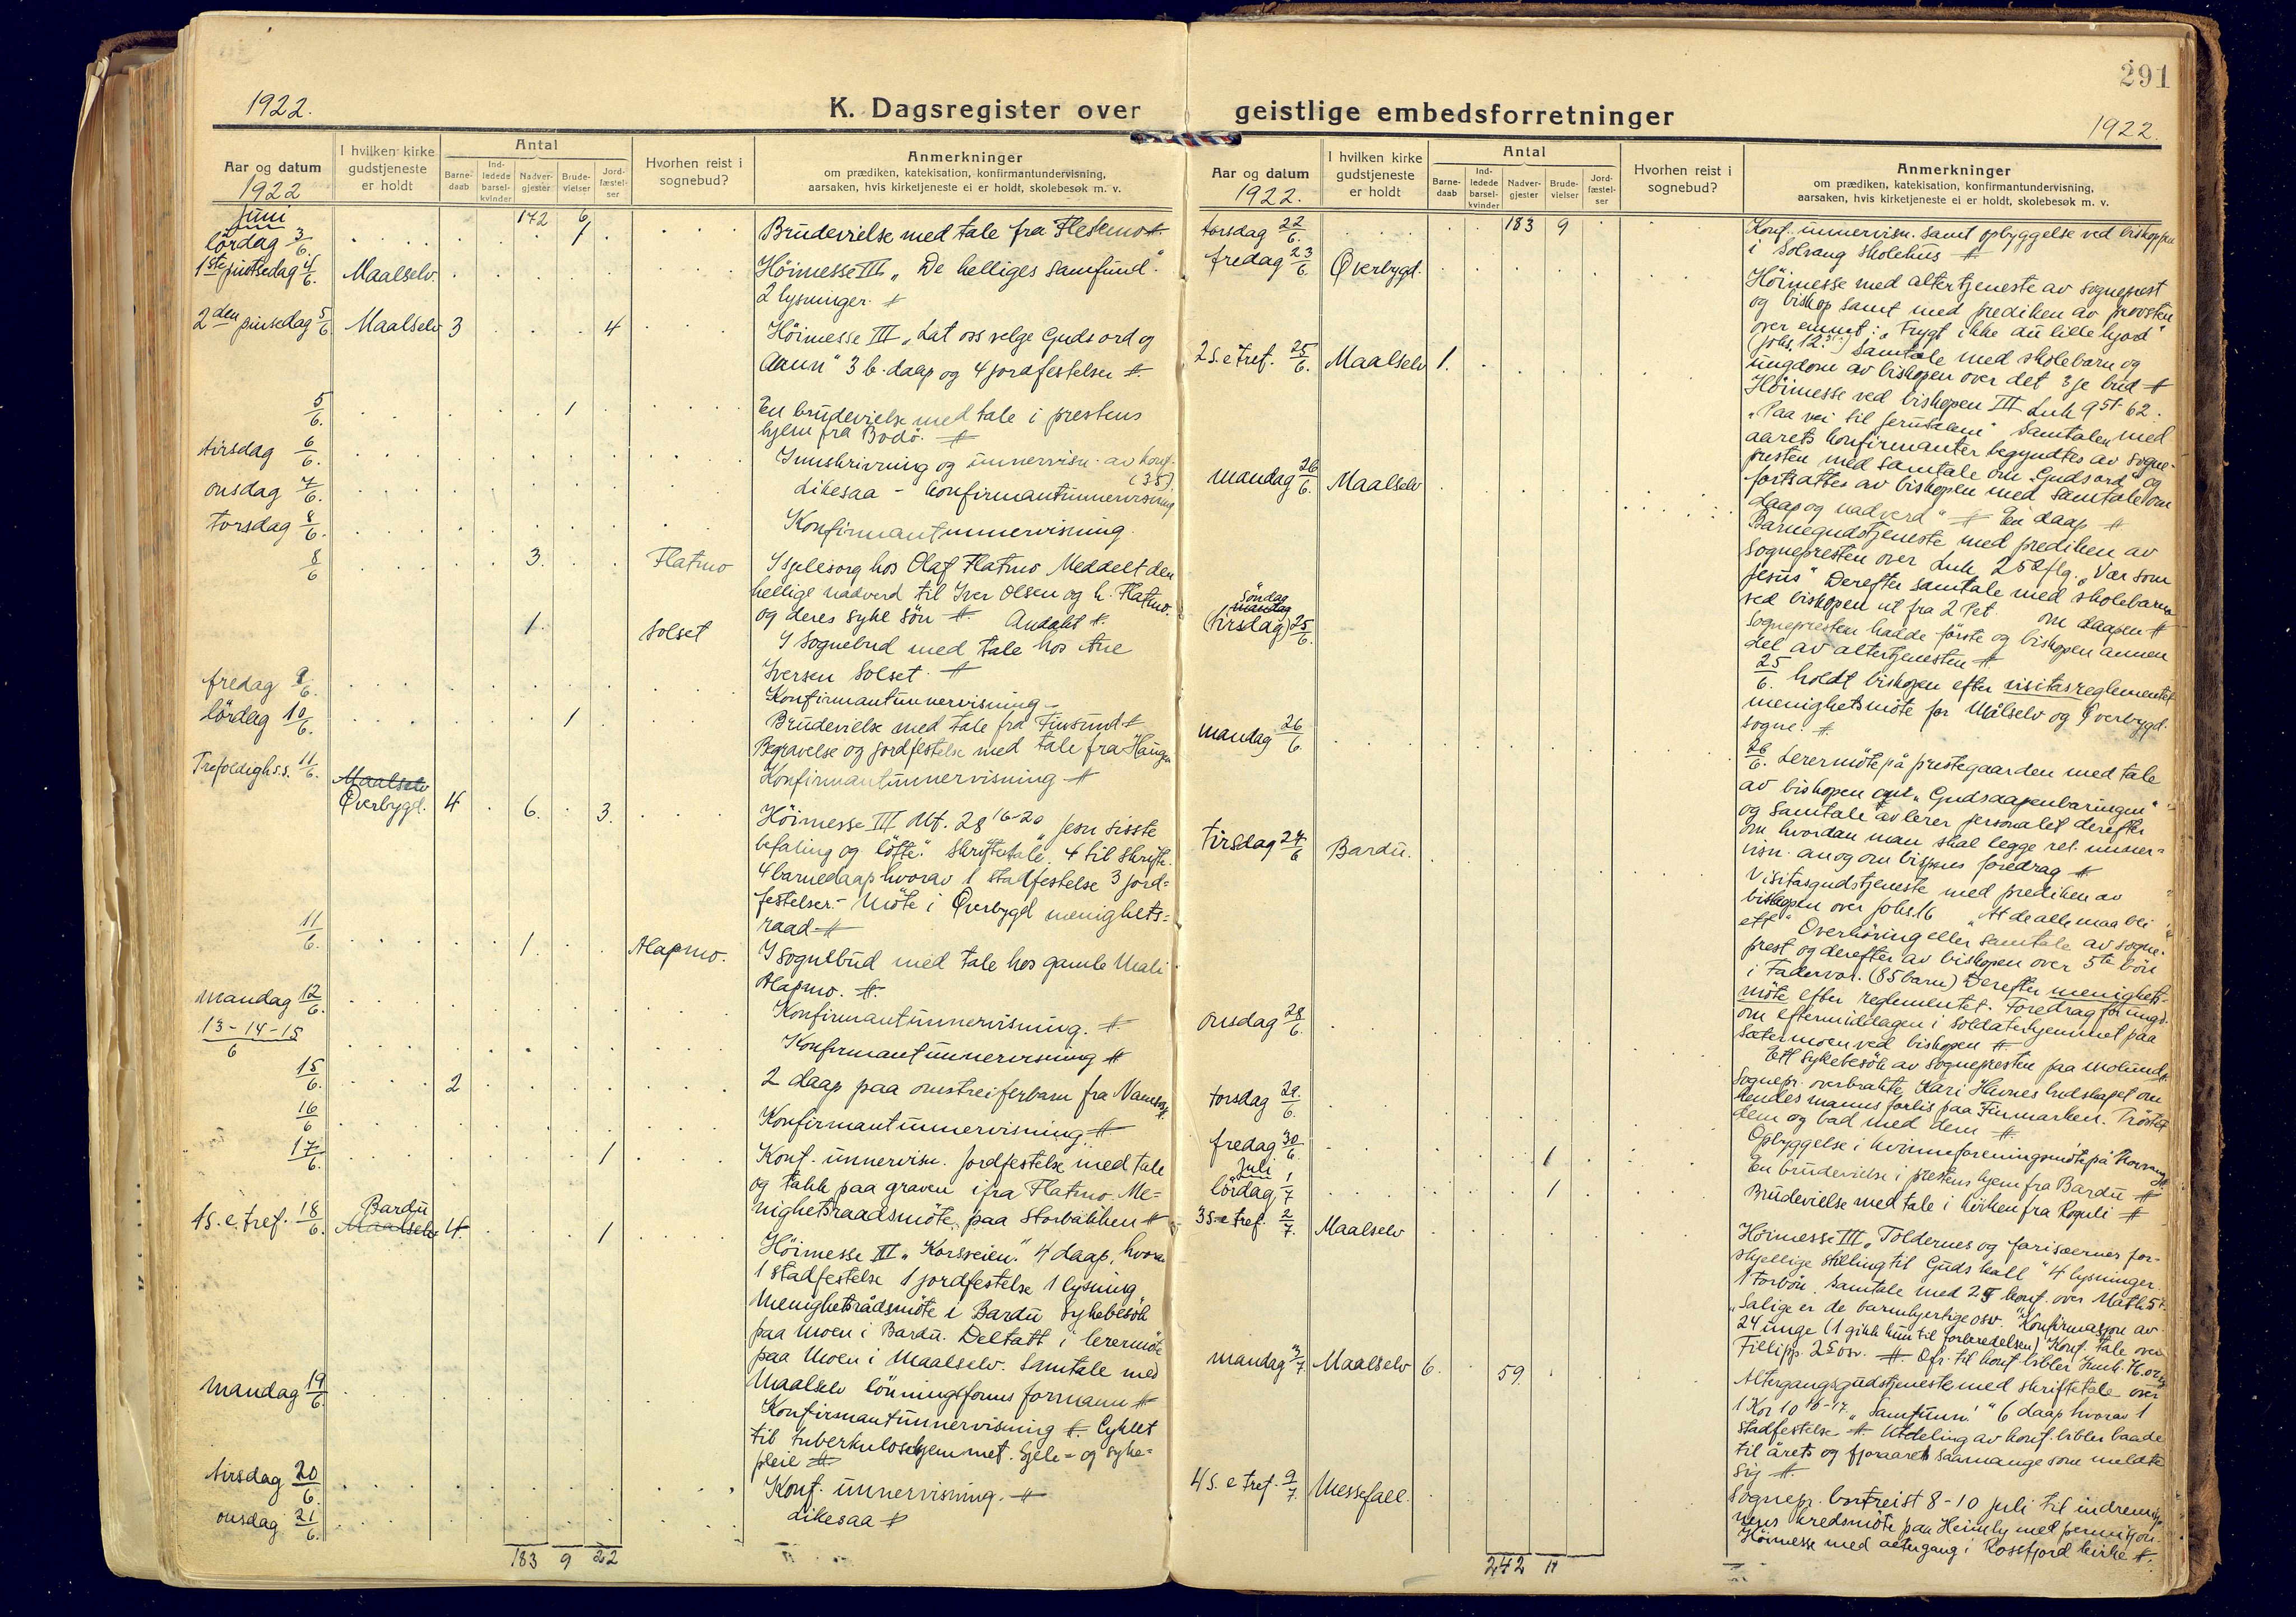 1922.
K. Dagsregister over
Aar og datum
1922
I hvilken kirke
gudstjeneste
er holdt
Antal
Barne-
daab
Ind-
ledede
barsel-
kvinder
Nadver-
gjester
Brude-
vielser
Jord-
fæstel-
ser
Hvorhen reist i
sognebud?
Anmerkninger
om prædiken, katekisation, konfirmantundervisning,
aarsaken, hvis kirketjeneste ei er holdt, skolebesøk m. v.
Juni 172 6
lördag 3/6. 1 Brudevielse med tale fra
1ste pintsedag 4/6. Maalselv. Höimesse III „De helliges samfund".
2 lysninger.
2den pinsedag 5/6 Maalselv 3 4 Höimesse III „Lat oss velge Guds ord og
Aann" 3 b. daap og 4 jordfestelser
5/6. 1 En brudevielse med tale i prestens
hjem fra Bodö.
tirsdag 6/6. Innskrivning og unnervisn. av konf.
(35).
onsdag 7/6. likesaa - konfirmantunnervisning
torsdag 8/6. Konfirmantunnervisning.
8/6 3. Flatmo I sjelesorg hos Olaf Flatmo Meddelt den
hellige nadverd til Iver Olsen og h. Flatmo.
og deres syke sön Andakt
1. Solset I Sognebud med tale hos Ane
Iversen Solset.
fredag 9/6. Konfirmantunnervisning
lördag 10/6. 1 Brudevielse med tale fra Finsund
Begravelse og jordfestelse med tale fra Haugen
Konfirmantunnervisning
Trefoldighs.s. 11/6. Maalselv
Överbygd. 4 6. 3. Höimesse III Mt. 28 16-20 „Jesu sisste
befaling og löfte." Skriftetale. 4 til skrifte.
4 barnedaap hvorav 1 stadfestelse 3 jord=
festelser.- Möte i Överbygd menighets=
raad
11/6. 1. Alapmo. I sognebud med tale hos gamle Mali
Alapmo.
mandag 12/6. Konfirmantunnervisning.
13-14-15/6 Konfirmantunnervisning
15/6. 2 2 daap paa omstreiferbarn fra
16/6 Konfirmantunnervisning.
17/6. 1 Konf. unnervisn. Jordfestelse med tale
og takk paa graven ifra Flatmo. Me=
nighetsraadsmöte, paa Storbakken
1 s. e. tref. 18/6. Bardu
Maalselv 4. 1 Höimesse III „Korsveien." 4 daap, hvorav
1 stadfestelse 1 jordfestelse 1 lysning
Menighetsrådsmöte i Bardu Sykebesök
paa Moen i Bardu. Deltatt i lerermöte
paa Moen i Maalselv. Samtale med
Maalselv lönningsfonns formann
mandag 19/6. Konfirmantunnervisning. Cyklet
til tuberkulosehjemmet. Sjele= og syke=
pleie
tirsdag 20/6. Konf. unnervisning.
onsdag 21/6. likesaa
183 9 22
291
geistlige embedsforretninger
1922.
Aar og datum
1922.
I hvilken kirke
gudstjeneste
er holdt
Antal
Barne-
daab
Ind-
ledede
barsel-
kvinder
Nadver-
gjester
Brude-
vielser
Jord-
fæstel-
ser
Hvorhen reist i
sognebud?
Anmerkninger
om prædiken, katekisation, konfirmantundervisning,
aarsaken, hvis kirketjeneste ei er holdt, skolebesøk m. v.
torsdag 22/6. 183 9 Konf. unnervisn. samt opbyggelse ved biskoppen
i Solvang skolehus
fredag 23/6. Överbygd. Höimesse med altertjeneste av sogneprest
og biskop samt med prediken av provsten
over emnet: „Frygt ikke du lille hjord"
Samtale med skolebarn og
ungdom av biskopen over det 3je bud
2 s. e tref. 25/6. Maalselv 1. Höimesse ved biskopen III Luk 9 51-62.
„Paa vei til Jerusalem" Samtalen med
aarets konfirmanter begyndtes av sogne-
presten med samtale om „Guds ord" og
fortsattes av biskopen med samtale om
„daap og nadverd" En daap
mandag 26/6. Maalselv Barnegudstjeneste med prediken av
Sognepresten over Luk 2 52 flg. „Vær som
Jesus" Derefter samtale med skolebarna
ved biskopen ut fra 2 Pet om daapen
Sognepresten hadde förste og biskopen annen
del av altertjenesten
söndag
mandag
(tirsdag) 25/6. 25/6. holdt biskopen efter visitasreglementet
menighetsmöte for Målselv og Överbygd.
sogne.
mandag 26/6. 26/6. Lerermöte på prestegaarden med tale
av biskopen om „Gudsaapenbaringen"
og samtale av lerer personalet derefter
om hvordan man skal legge rel. unner=
visn. an og om bispens foredrag
tirsdag 27/6 Bardu. Visitasgudstjeneste med prediken av
biskopen over Johs. 16 „At de alle maa bli
ett" Overhöring eller samtale av sogne-
prest og derefter av biskopen over 5te bön
i Fadervor. (85 barn) Derefter menighets-
möte efter reglementet. Foredrag for ungd.
om eftermiddagen i soldaterhjemmet paa
Setermoen ved biskopen
onsdag 28/6. Ett sykebesök av Sognepresten paa
Sognepr. overbrakte Kari Havnes budskapet om
hendes manns forlis paa Finmarken. Tröstet
dem og bad med dem
torsdag 29/6. Opbyggelse i kvinneforeningsmöte på
fredag 30/6 1 En brudevielse i prestens hjem fra Bardu
Juli
lördag 1/7 1 Brudevielse med tale i kirken fra Roguli
3 s. e tref. 2/7. Maalselv Höimesse III „Toldernes og fariseernes for-
skjellige stilling til Guds kall" 4 lysninger.
1 forbön. Samtale med 25 konf. over Math 5 7.
„Salige er de barmhjertige osv." Konfirmasjon av
24 unge (1 gikk kun til forberedelsen) Konf. tale over
Fillipp. 2 5 osv. Ofr. til konf. bibler
mandag 3/7. Maalselv 6. 59. Altergangsgudstjeneste med skriftetale over
1 Kor 10 16-17. „Samfunn!" 6 daap hvorav 1
stadfestelse. Utdeling av konf. bibler baade
til årets og fjoraarets saamange som meldte
sig
4 s. e tref. 9/7. Messefall. Sognepr. bortreist 8-10 juli til indremisjo-
nens kredsmöte paa Heimly med permisjon.
Höimesse med altergang i Rossfjord kirke
242 11